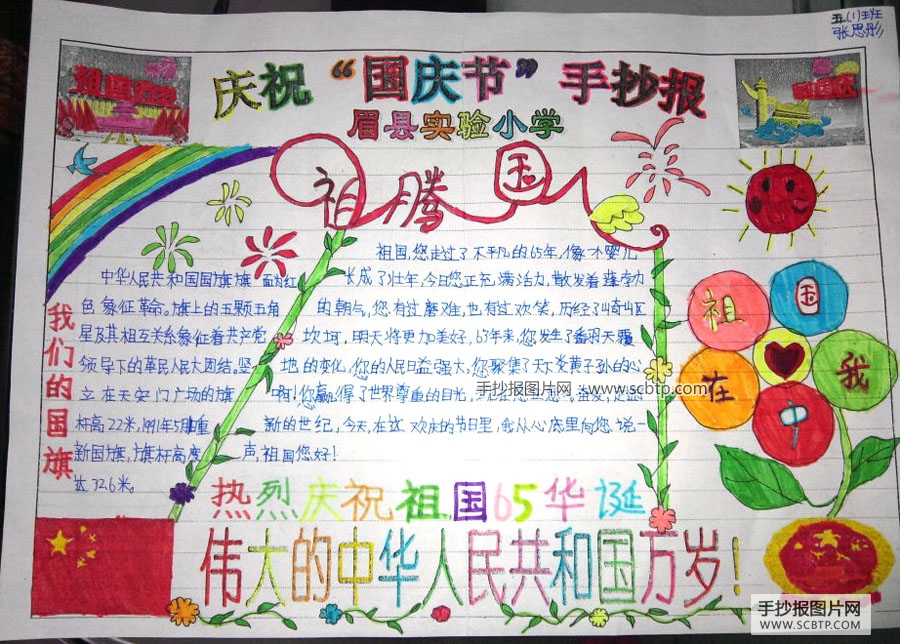 五(1)班
张思彤
庆祝“国庆节”手抄报
眉县实验小学
祖国万岁
祖腾国
我们的国旗
中华人民共和国国旗旗面为红
色象征革命。旗上的五颗五角
星及其相互关系象征着共产党
领导下的革民人民大团结。竖
立在天安门广场的旗
杆高22米,1991年5月重
新国旗,旗杆高度
达32.6米。
祖国,您走过了不平凡的65年,像一个婴儿
长成了壮年,今日您正充满活力,散发着蓬勃
的朝气,您有过磨难,也有过欢笑,历经了崎岖
坎坷,明天将更加美好,65年来,您发生了翻天覆
地的变化,您的人民日益强大,您聚集了天下炎黄子孙的心
啊!您赢得了世界尊重的目光,
新的世纪,今天,在这欢庆的节日里,我从心底里向您说一
声,祖国您好!
祖
国
在
我
中
热烈庆祝祖国65华诞
伟大的中华人民共和国万岁!
手抄报图片网 www.scbtp.com
手抄报图片网
WWW.SCBTP.COM